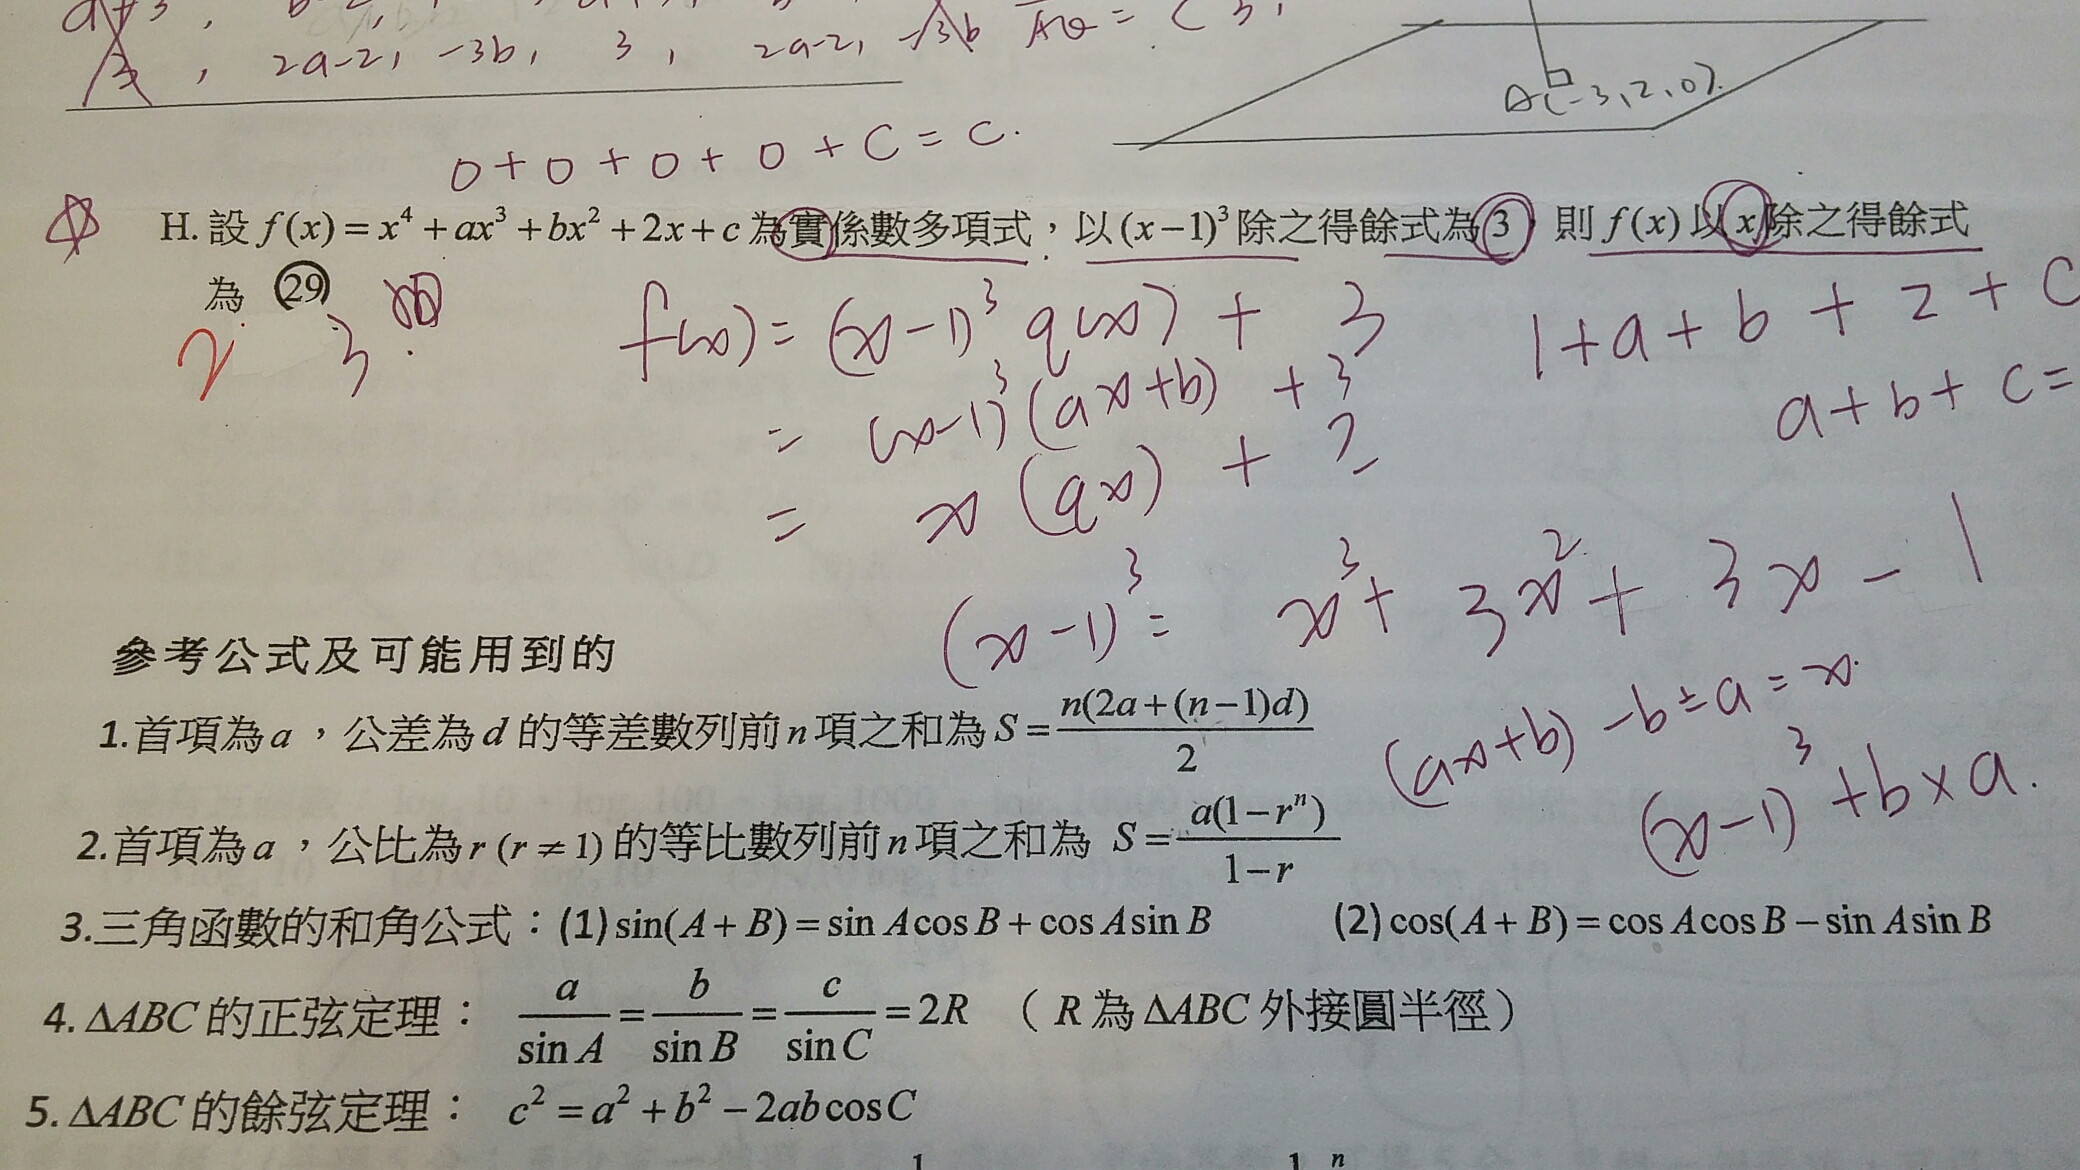 2a-2, -3b, 3, 2a-2, -3b
A(-3,2,0).
0+0+0+0+C=C.
H. 設 f(x)=x⁴+ax³+bx²+2x+c 為實係數多項式，以(x−1)³除之得餘式為3，則 f(x) 以x除之得餘式
為 ㉙
2. 3
f(x)=(x-1)³q(x)+3
1+a+b+2+C
=(x-1)³(ax+b)+3
a+b+c=
=x(qx)+2
(x-1)³=x³+3x²+3x-1
參考公式及可能用到的
(ax+b)-b÷a=x.
1.首項為a，公差為d的等差數列前n項之和為S=n(2a+(n−1)d)/2
(x-1)³+b×a.
2.首項為a，公比為r(r≠1)的等比數列前n項之和為 S=a(1−rⁿ)/1−r
3.三角函數的和角公式：(1)sin(A+B)=sin A cos B+cos A sin B (2)cos(A+B)=cos A cos B−sin A sin B
4.ΔABC的正弦定理： a/sin A=b/sin B=c/sin C=2R （R為ΔABC外接圓半徑）
5.ΔABC的餘弦定理： c²=a²+b²−2ab cos C